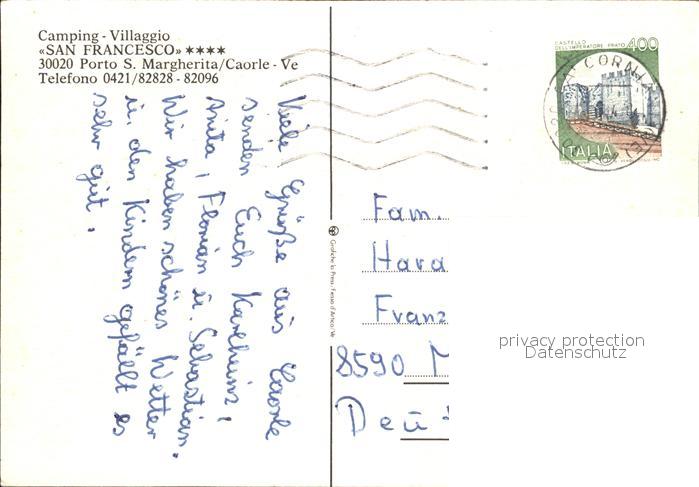 Camping - Villaggio
«SAN FRANCESCO» ★★★★
30020 Porto S. Margherita/Caorle - Ve
Telefono 0421/82828 - 82096
Viele Grüße aus Caorle
senden Euch Karlheinz,
Anita, Florian u. Sebastian.
Wir haben schönes Wetter
u. den Kindern gefällt es
sehr gut.
CASTELLO
DELL'IMPERATORE PRATO 400
ITALIA
Grafiche la Press - Fiesso d'Artico - Ve
Fam.
Hara
Franz
8590 M
Deu
privacy protection
Datenschutz